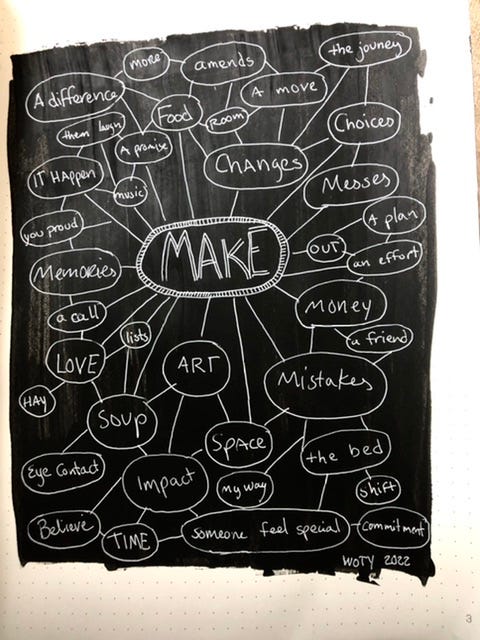 more
amends
the jouney
A difference
A move
Food
Room
Choices
them laugh
A promise
IT HAppen
CHANGES
Messes
music
A plan
you proud
MAKE
OUT
an effort
Memories
Money
a call
lists
a friend
LOVE
ART
Mistakes
HAY
SOUP
SPACE
the bed
Eye Contact
Impact
my way
shift
Believe
TIME
someone feel special
commitment
WOTY 2022
3